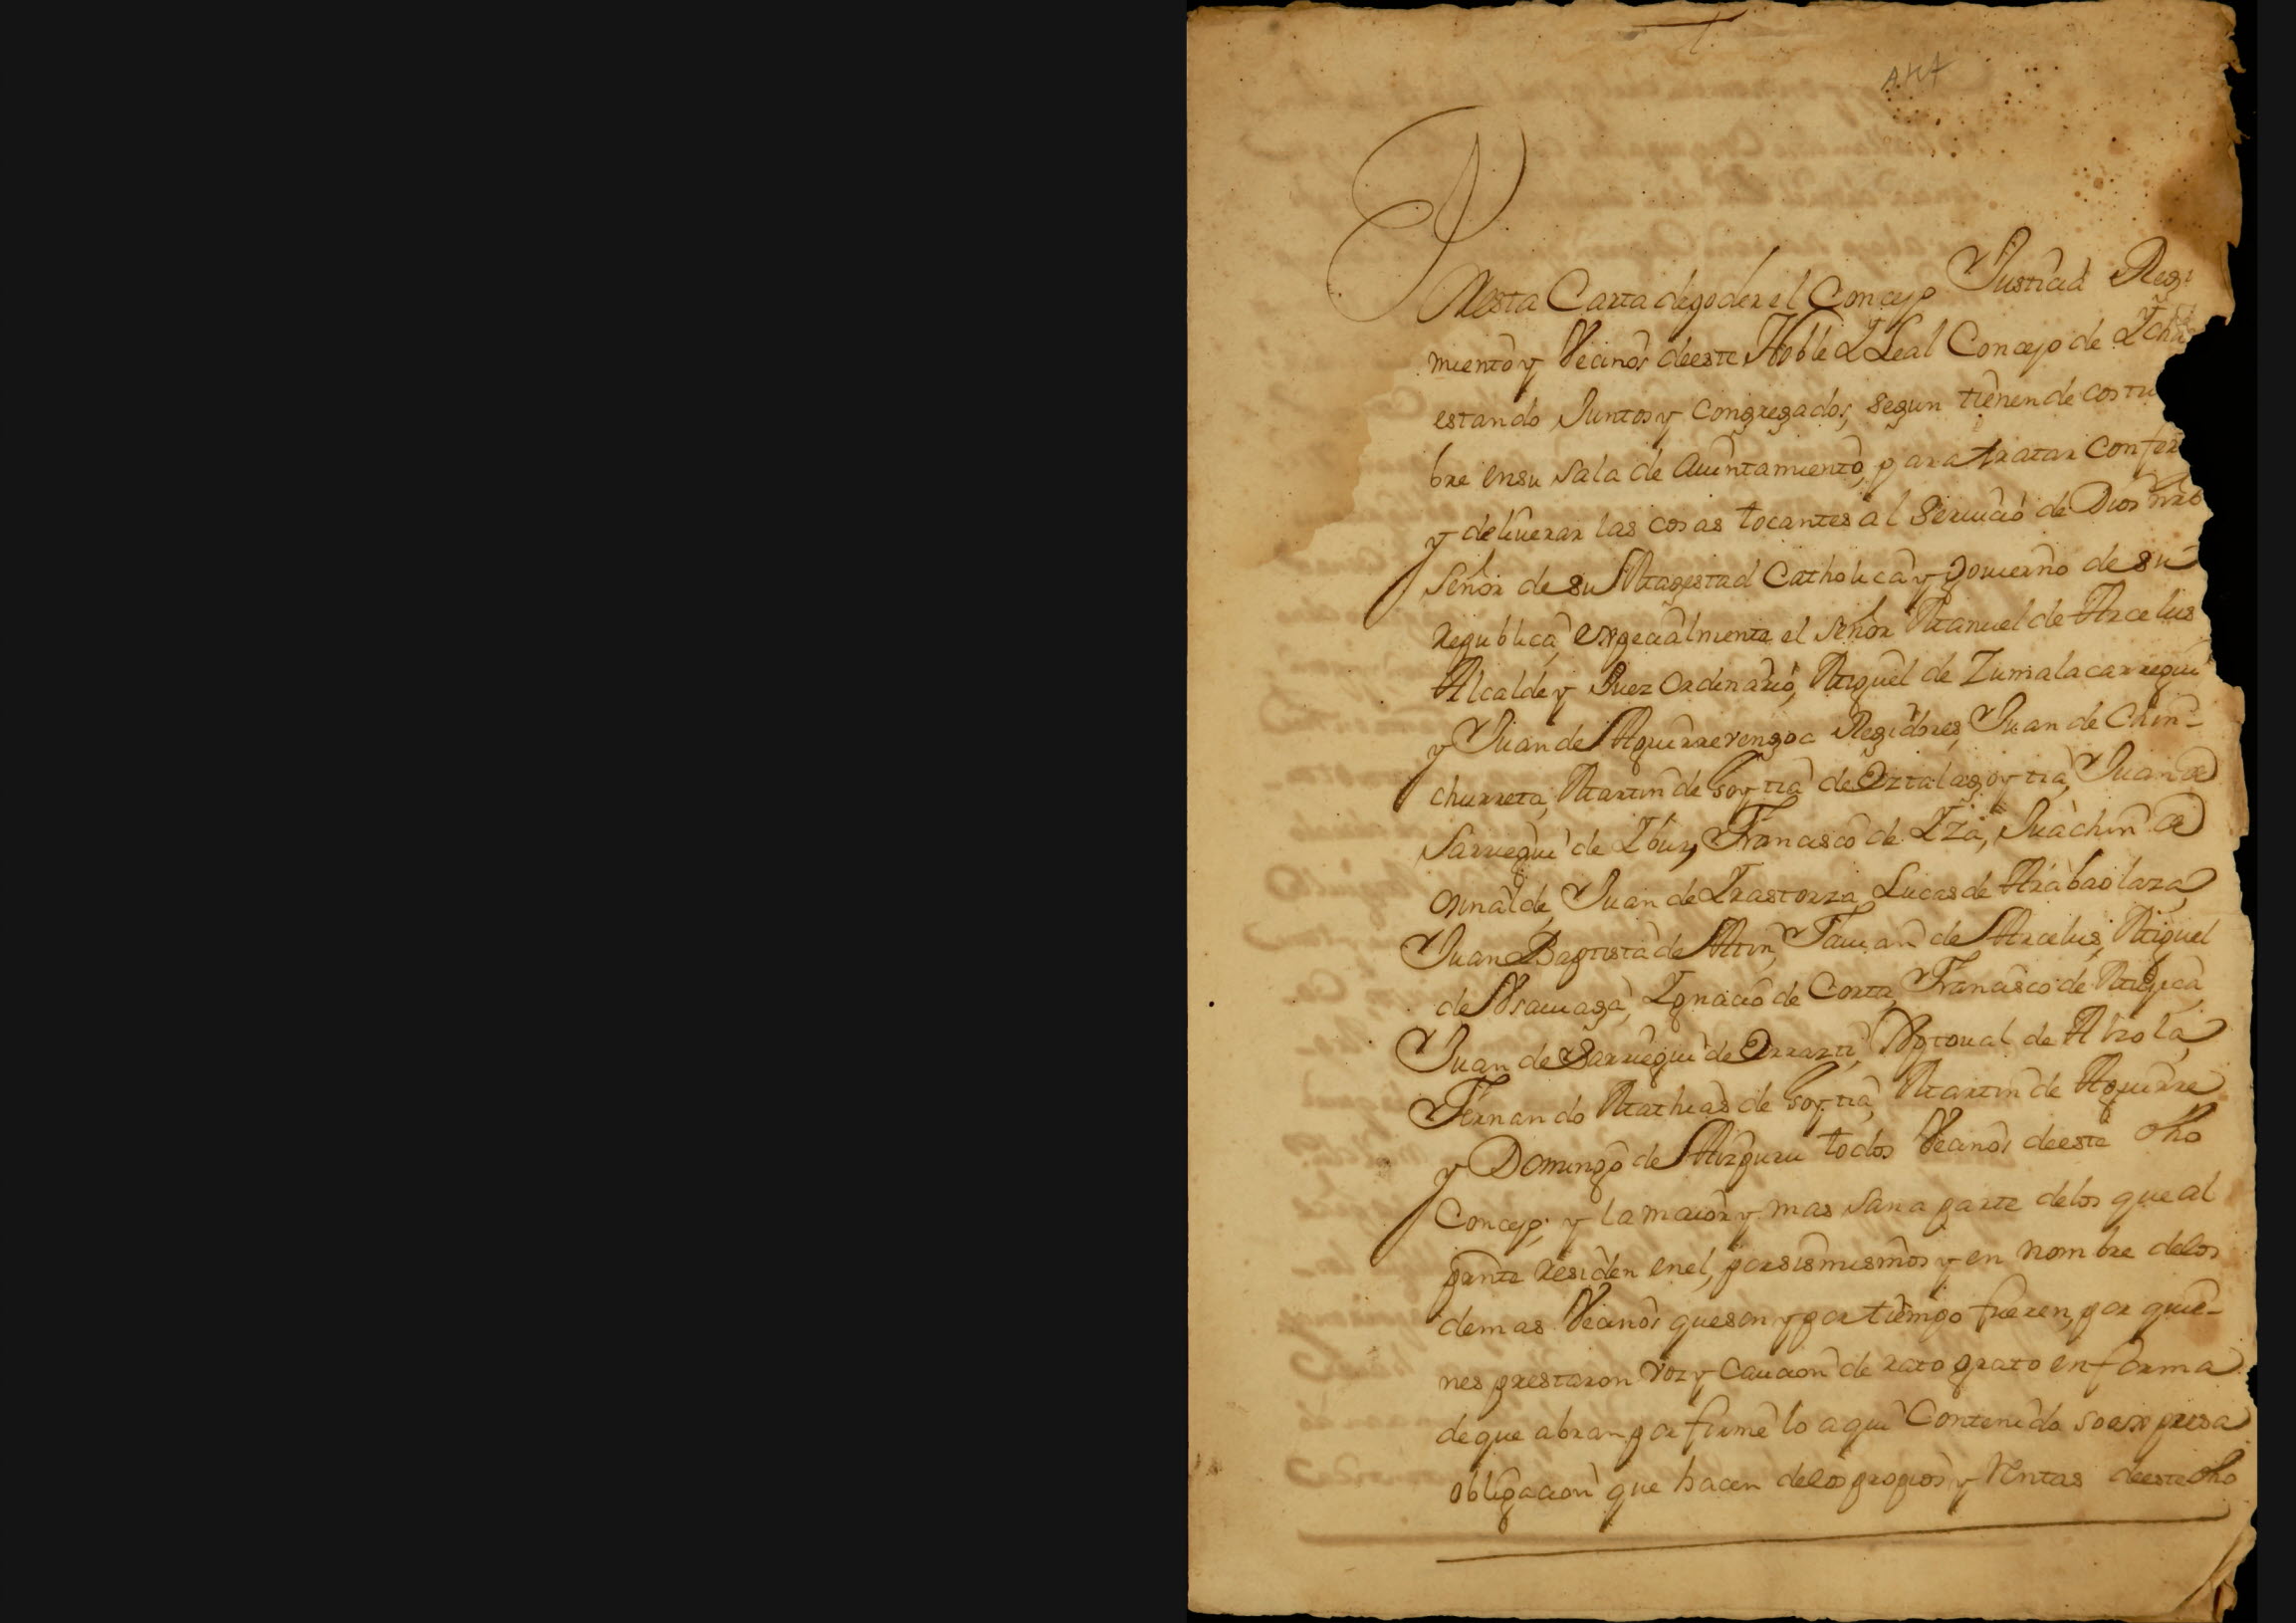 En esta Carta de poder el Concejo Justicia Regi
miento y Vecinos deeste Noble L Leal Concejo de Ycha
estando Juntos y Congregados, segun tienen de costu
bre en su Sala de Auintamiento, para tratar Confer
y deliuerar las cosas tocantes al Seruicio de Dios nro
Señor de su Magestad Catholica y Gouierno de su
republica, expecialmente el Señor Manuel de Arcelus
Alcalde y Juez Ordinario, Miguel de Zumalacarregui
y Juan de Aguirrevengoa Regidores, Juan de Chin-
churreta, Martin de Goytia de Oztalagoytia, Juan de
Sarriegui de Ybur, Francisco de Yza, Juachin de
Oinalde, Juan de Yrastorza, Lucas de Arabaolaza,
Juan Baptista de Atin, Damian de Arcelus, Miguel
de Vsauiaga, Ygnacio de Corta, Francisco de Mugica,
Juan de Sarriegui de Orrarti, Xptoual de Alzola,
Fernando Mathias de Goytia, Martin de Aguirre
y Domingo de Aizpuru todos Vecinos deeste dho
Concejo; y la maior y mas Sana parte delos que al
pnte residen enel, por sismismos y en nombre delos
demas Vecinos que son y por tiempo fueren, por quie-
nes prestaron voz y Caucion de rato grato en forma
de que abran por firme lo aqui Contenido so expresa
obligacion que hacen delos propios y Rentas deeste dho